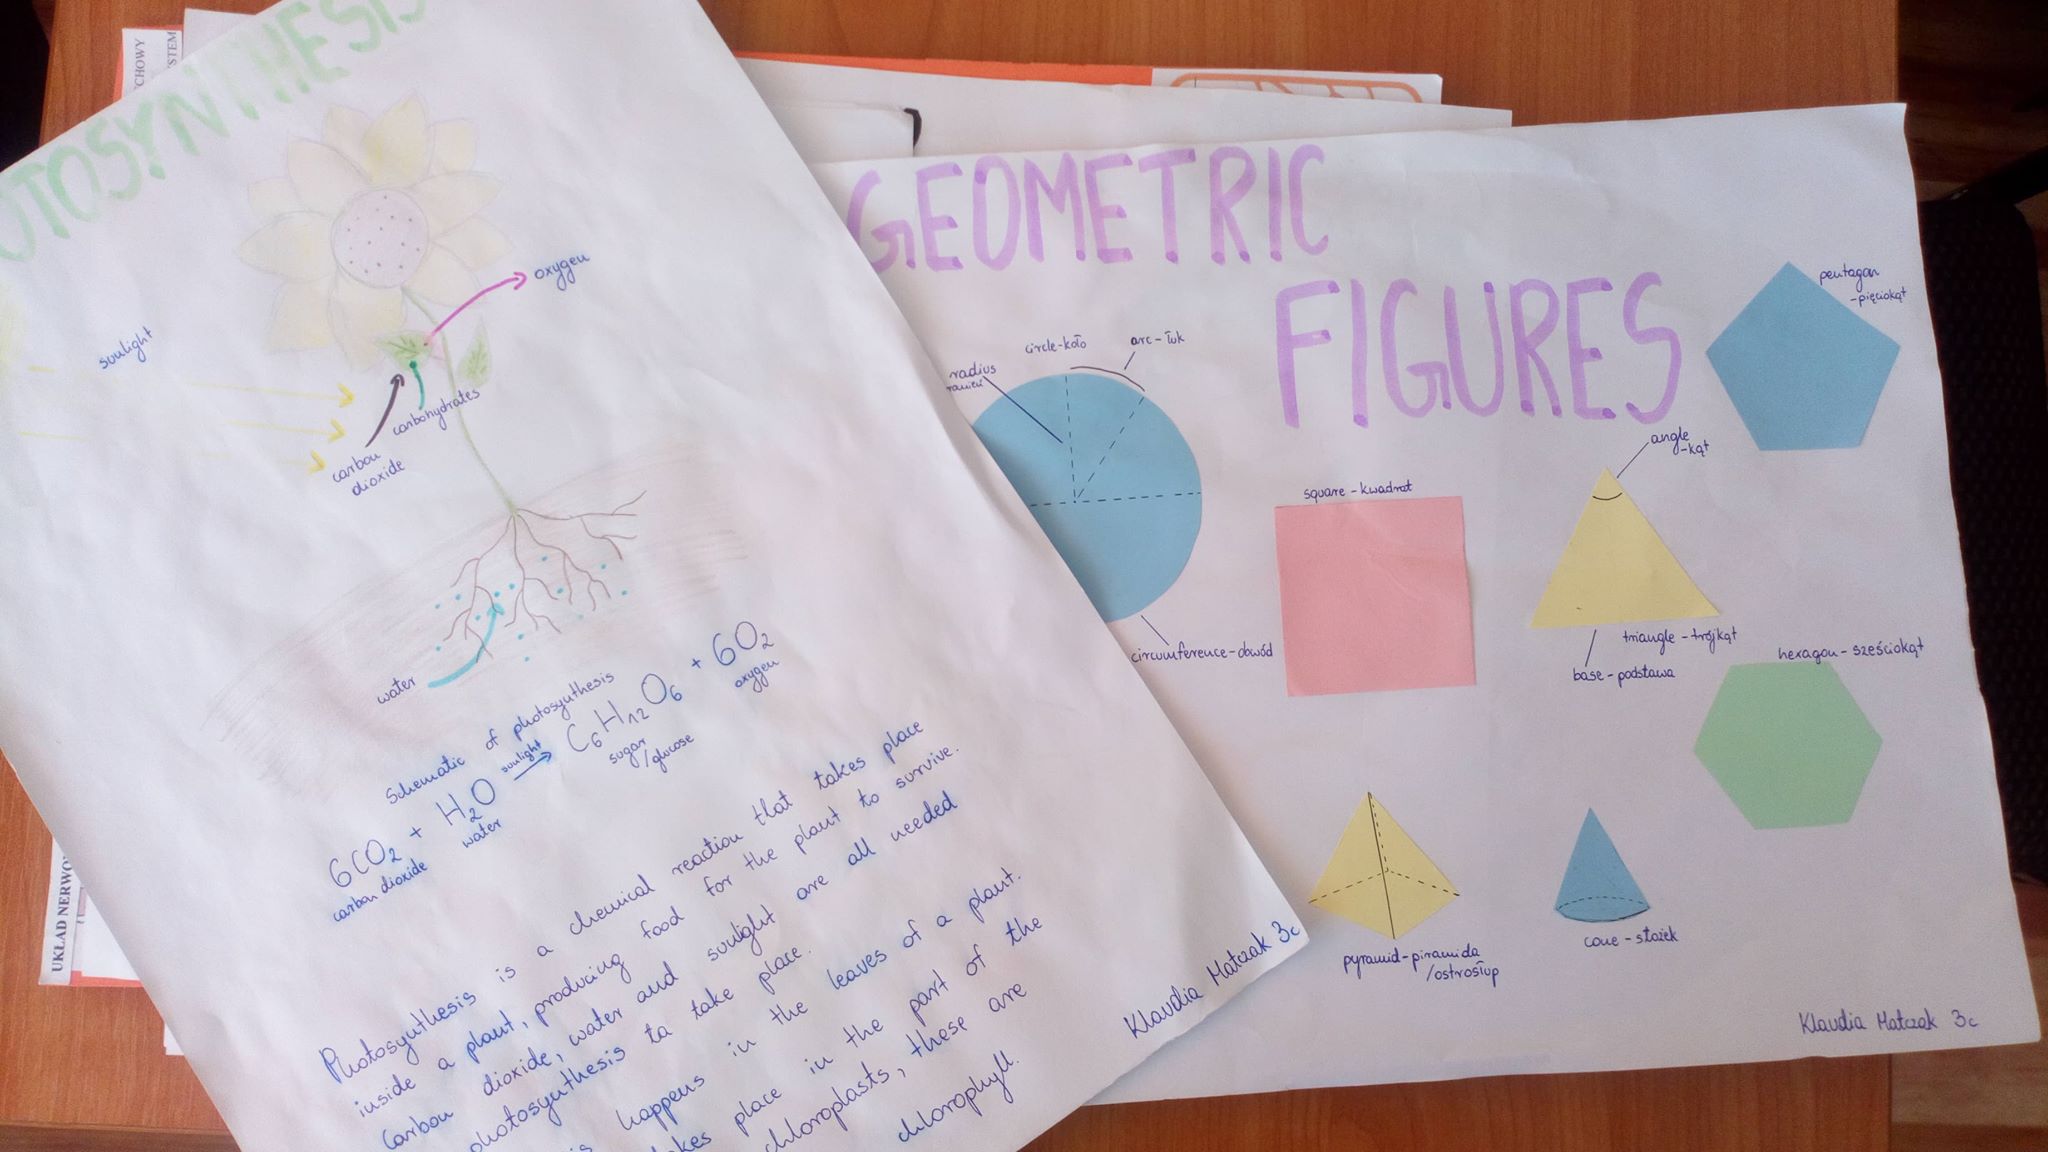 OTOSYNTHESIS
sunlight
oxygen
carbohydrates
carbon
dioxide
water
Schematic of photosynthesis
6CO2 + H2O sunlight → C6H12O6 + 6O2
carbon dioxide water sugar /glucose oxygen
Photosynthesis is a chemical reaction that takes place
inside a plant, producing food for the plant to survive.
Carbon dioxide, water and sunlight are all needed
photosynthesis to take place.
is happens in the leaves of a plant.
takes place in the part of the
chloroplasts, these are
chlorophyll.
Klaudia Matczak 3c
GEOMETRIC
FIGURES
circle-koło
arc-łuk
radius
circumference-obwód
square-kwadrat
angle
-kąt
triangle-trójkąt
base-podstawa
pentagon
-pięciokąt
hexagon-sześciokąt
pyramid-piramida
/ostrosłup
cone-stożek
Klaudia Matczak 3c
CHOWY
STEM
UKŁAD NERWO